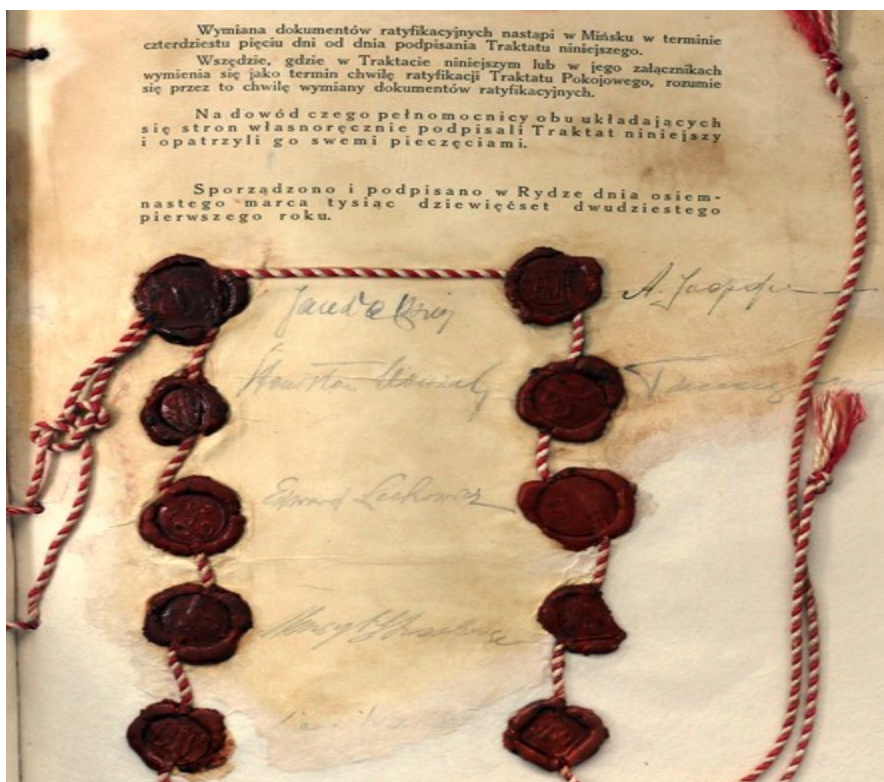 Wymiana dokumentów ratyfikacyjnych nastąpi w Mińsku w terminie
czterdziestu pięciu dni od dnia podpisania Traktatu niniejszego.
Wszędzie, gdzie w Traktacie niniejszym lub w jego załącznikach
wymienia się jako termin chwilę ratyfikacji Traktatu Pokojowego, rozumie
się przez to chwilę wymiany dokumentów ratyfikacyjnych.
Na dowód czego pełnomocnicy obu układających
się stron własnoręcznie podpisali Traktat niniejszy
i opatrzyli go swemi pieczęciami.
Sporządzono i podpisano w Rydze dnia osiem-
nastego marca tysiąc dziewięćset dwudziestego
pierwszego roku.
A.
Stanisław
Edward Lechowicz